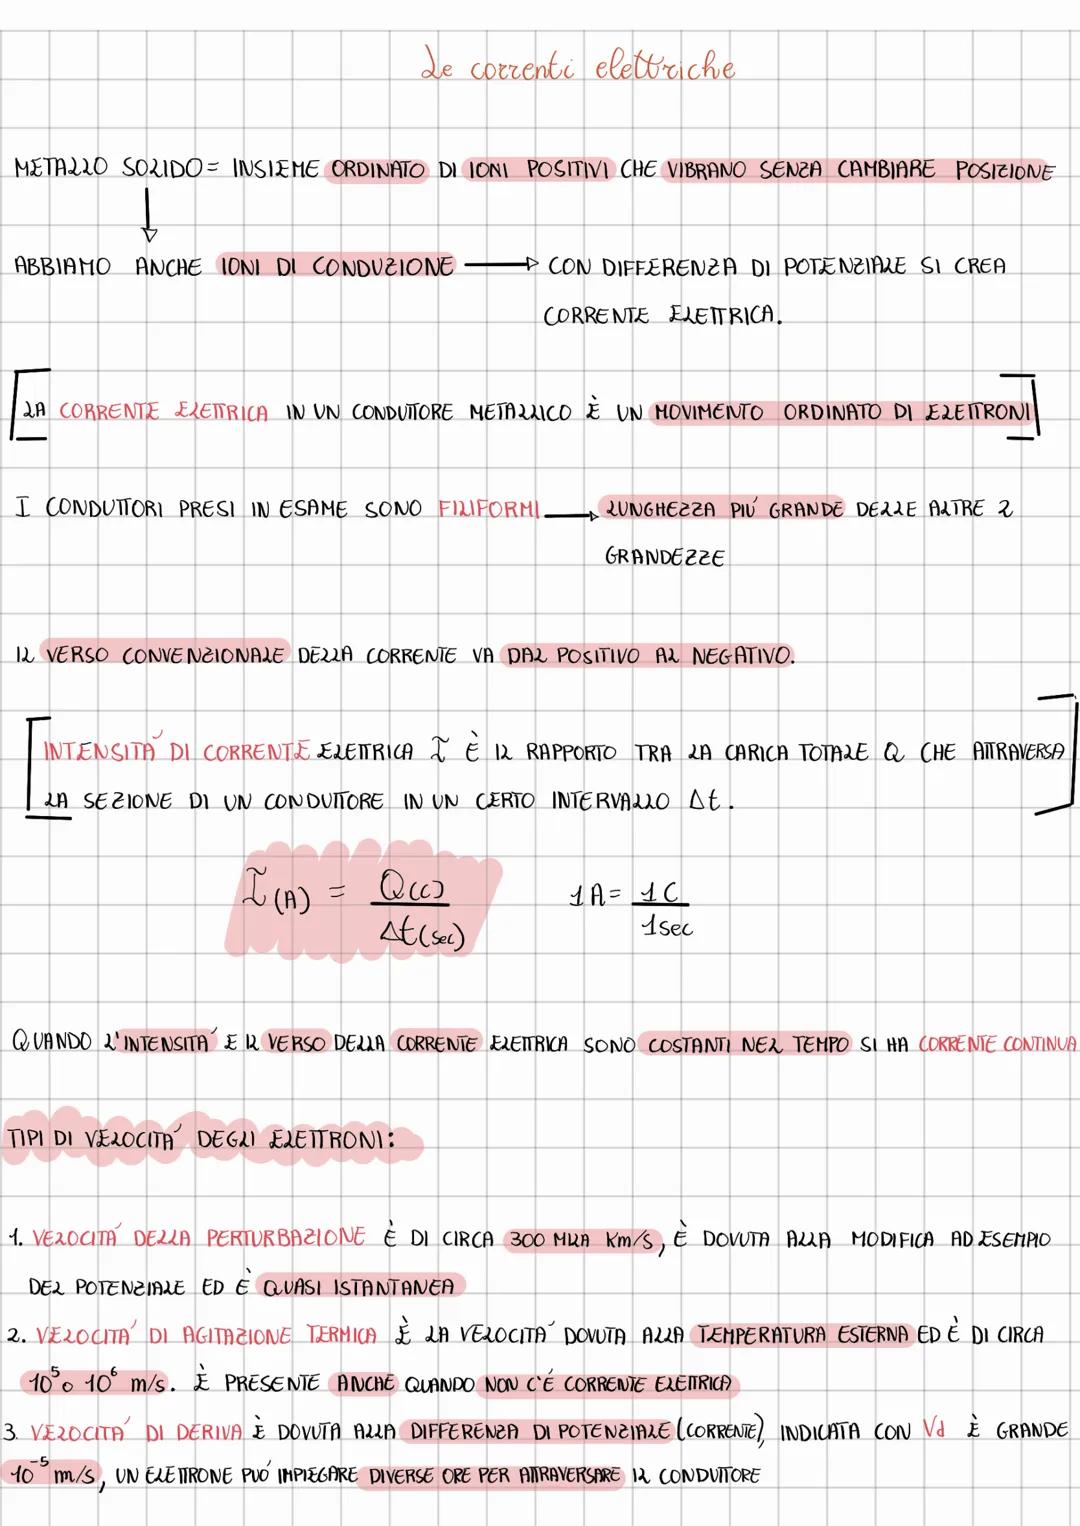 Le correnti elettriche
METALLO SOLIDO = INSIEME ORDINATO DI IONI POSITIVI CHE VIBRANO SENZA CAMBIARE POSIZIONE
ABBIAMO ANCHE IONI DI CONDUZIONE → CON DIFFERENZA DI POTENZIALE SI CREA
CORRENTE ELETTRICA.
LA CORRENTE ELETTRICA IN UN CONDUTTORE METALLICO È UN MOVIMENTO ORDINATO DI ELETTRONI
I CONDUTTORI PRESI IN ESAME SONO FILIFORMI → LUNGHEZZA PIÚ GRANDE DELLE ALTRE 2
GRANDEZZE
IL VERSO CONVENZIONALE DELLA CORRENTE VA DAL POSITIVO AL NEGATIVO.
INTENSITÁ DI CORRENTE ELETTRICA I È IL RAPPORTO TRA LA CARICA TOTALE Q CHE ATTRAVERSA
LA SEZIONE DI UN CONDUTTORE IN UN CERTO INTERVALLO Δt.
I(A) = Q(C) / Δt(sec) 1A = 1C / 1sec
QUANDO L'INTENSITÁ E IL VERSO DELLA CORRENTE ELETTRICA SONO COSTANTI NEL TEMPO SI HA CORRENTE CONTINUA
TIPI DI VELOCITÁ DEGLI ELETTRONI:
1. VELOCITÁ DELLA PERTURBAZIONE È DI CIRCA 300 MILA Km/s, È DOVUTA ALLA MODIFICA AD ESEMPIO
DEL POTENZIALE ED È QUASI ISTANTANEA
2. VELOCITÁ DI AGITAZIONE TERMICA È LA VELOCITÁ DOVUTA ALLA TEMPERATURA ESTERNA ED È DI CIRCA
10⁵ o 10⁶ m/s. È PRESENTE ANCHE QUANDO NON C'É CORRENTE ELETTRICA
3. VELOCITÁ DI DERIVA È DOVUTA ALLA DIFFERENZA DI POTENZIALE (CORRENTE), INDICATA CON Vd È GRANDE
10⁻⁵ m/s, UN ELETTRONE PUÓ IMPIEGARE DIVERSE ORE PER ATTRAVERSARE IL CONDUTTORE